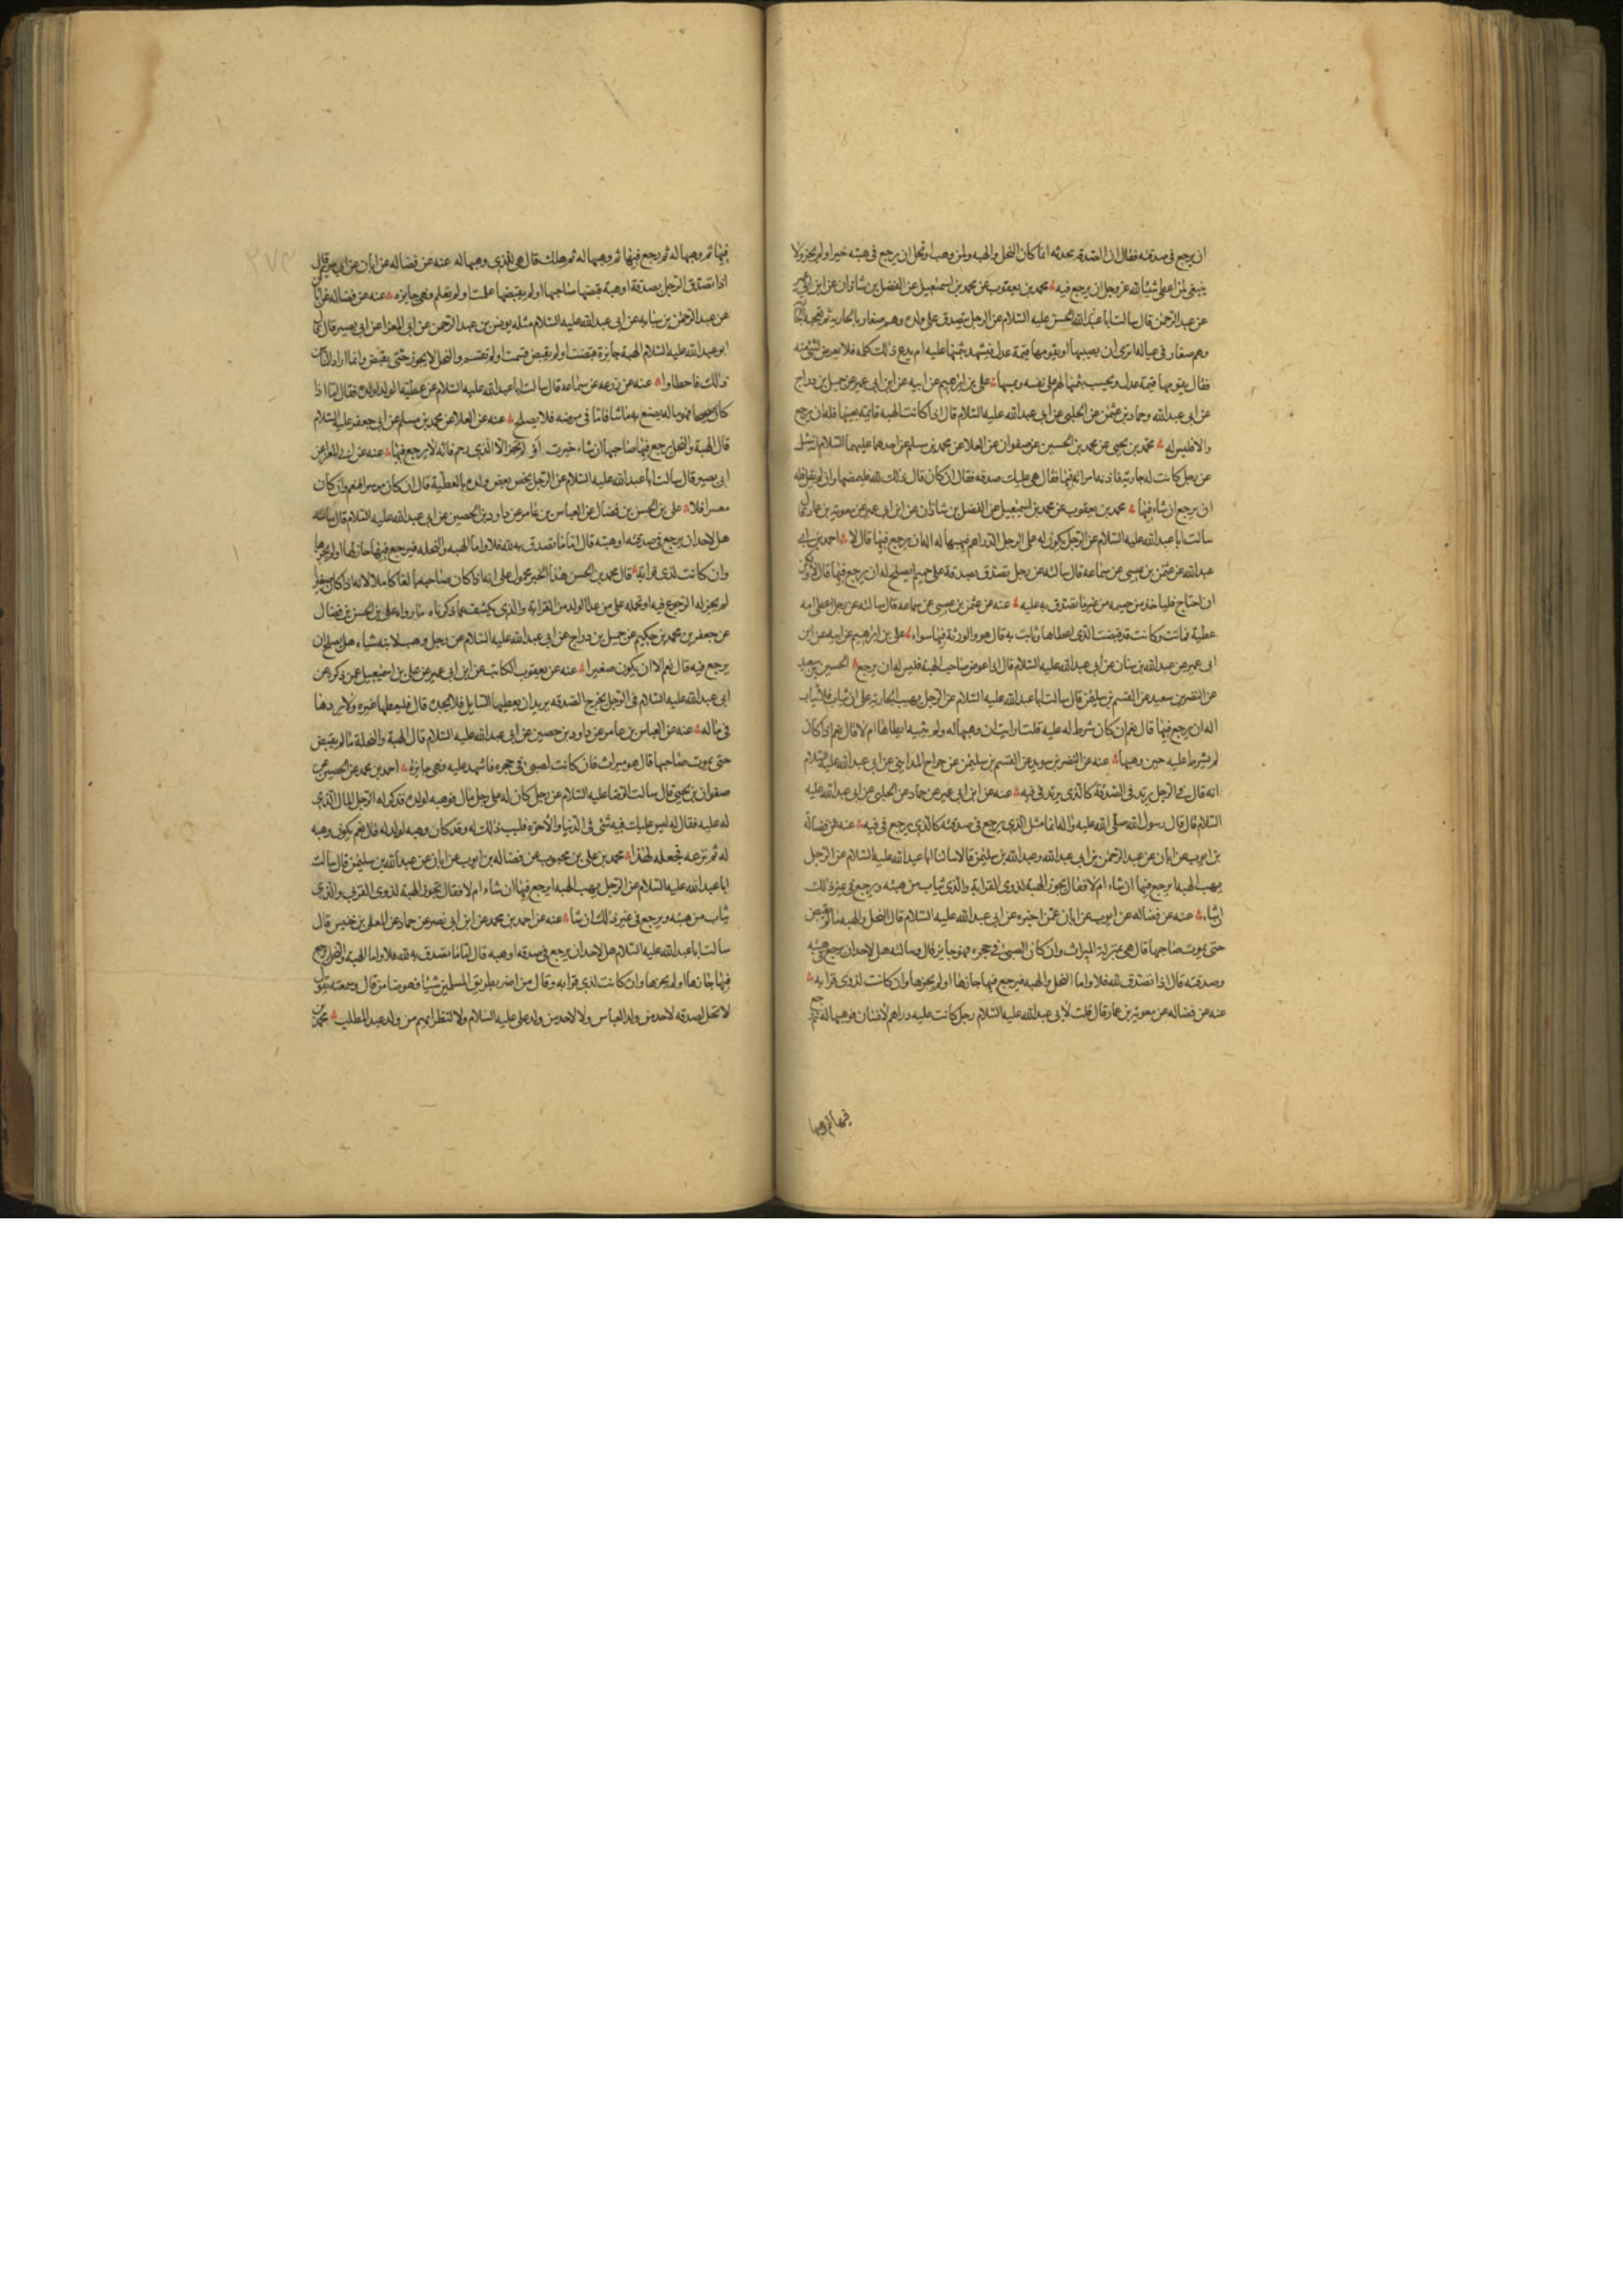 ان يرجع فى صدقته فقال ان الصدقه محدثه انما كان النحل والهبه ولمن وهب او نحل ان يرجع فى هبته حيز او لم يحز ولا
ينبغى لمن اعطى شيئا لله عز وجل ان يرجع فيه محمد بن يعقوب عن محمد بن اسمعيل عن الفضل بن شاذان عن ابن ابى عمير
عن عبد الرحمن قال سالت ابا عبد الله عليه السلام عن الرجل يتصدق على ولده وهم صغار بالجاريه ثم تعجبه
وهم صغار فى عياله اترى ان يصيبها او يقومها قيمة عدل فيشهد بثمنها عليه ام يدع ذلك كله فلا يعرض لشئ منه
فقال يقومها قيمة عدل ويحسب بثمنها لهم على نفسه ويمسها على بن ابرهيم عن ابيه عن ابن ابى عمير عن جميل بن دراج
عن ابى عبد الله وحماد بن عثمن عن الحلبى عن ابى عبد الله عليه السلام قال اذا كانت الهبه قايمة بعينها فله ان يرجع
والا فليس له محمد بن يحيى عن محمد بن الحسين عن صفوان عن العلا عن محمد بن مسلم عن احدهما عليهما السلام انه سئل
عن رجل كانت له جارية فاذته امراته فيها فقال هى عليك صدقه فقال ان كان قال ذلك لله فليمضها وان لم يقل فله
ان يرجع ان شاء فيها محمد بن يعقوب عن محمد بن اسمعيل عن الفضل بن شاذان عن ابن ابى عمير عن معوية بن عمار قال
سالت ابا عبد الله عليه السلام عن الرجل يكون له على الرجل الدراهم فيهبها له اله ان يرجع فيها قال لا احمد بن ابى
عبد الله عن عثمن بن عيسى عن سماعه قال سالته عن رجل تصدق بصدقة على حميم ايصلح له ان يرجع فيها قال لا ولكن
ان احتاج فلياخذ من حميمه من غير ما تصدق به عليه عنه عن عثمن بن عيسى عن سماعه قال سالته عن رجل اعطى امه
عطية فماتت وكانت قد قبضت الذى اعطاها وبانت به قال هو والورثة فيها سواء على بن ابرهيم عن ابيه عن ابن
ابى عمير عن عبد الله بن سنان عن ابى عبد الله عليه السلام قال اذا عوض صاحب الهبة فليس له ان يرجع الحسين بن سعيد
عن النضر بن سويد عن القسم بن سليمن قال سالت ابا عبد الله عليه السلام عن الرجل يهب الجارية على ان يثاب فلا يثاب
اله ان يرجع فيها قال نعم ان كان شرط له عليه قلت ارايت ان وهبها له ولم يثبه ايطاها ام لا قال نعم اذا كان
لم يشترط عليه حين وهبها عنه عن النضر بن سويد عن القسم بن سليمن عن جراح المداينى عن ابى عبد الله عليه السلام
انه قال فى الرجل يرتد فى الصدقة كالذى يرتد فى قيئه عنه عن ابن ابى عمير عن حماد عن الحلبى عن ابى عبد الله عليه
السلام قال قال رسول الله صلى الله عليه واله انما مثل الذى يرجع فى صدقته كالذى يرجع فى قيئه عنه عن فضاله
بن ايوب عن ابان عن عبد الرحمن بن ابى عبد الله وعبد الله بن سليمن قالا سالنا ابا عبد الله عليه السلام عن الرجل
يهب الهبه ايرجع فيها ان شاء ام لا فقال تجوز الهبة لذوى القرابة والذى يثاب من هبته ويرجع فى غير ذلك
ان شاء عنه عن فضاله عن ايوب عن ابان عمن اخبره عن ابى عبد الله عليه السلام قال النحل والهبة ما لم يقبض
حتى يموت صاحبها قال هى بمنزلة الميراث وان كان الصبى فى حجره فهو جايز قال وسالته هل لاحد ان يرجع فى هبته
وصدقته قال اذا تصدق لله فلا واما النحل والهبه فيرجع فيها حازها او لم يحزها وان كانت لذوى قرابه
عنه عن فضاله عن معوية بن عمار قال قلت لابى عبد الله عليه السلام رجل كانت عليه دراهم لانسان فوهبها له ثم رجع
فيها ثم وهبها
فيها ثم وهبها له ثم رجع فيها ثم وهبها له ثم هلك قال هى للذى وهبها له عنه عن فضاله عن ابان عن ابى مريم قال
اذا تصدق الرجل بصدقة او هبة قبضها صاحبها او لم يقبضها علمت او لم تعلم فهى جايزه عنه عن فضاله عن ابان
عن عبد الرحمن بن سيابه عن ابى عبد الله عليه السلام مثله يونس بن عبد الرحمن عن ابى المعزا عن ابى بصير قال قال
ابو عبد الله عليه السلام الهبة جايزة قبضت او لم تقبض قسمت او لم تقسم والنحل لا يجوز حتى يقبض وانما اراد الناس
ذلك فاخطاوا عنه عن زرعه عن سماعه قال سالت ابا عبد الله عليه السلام عن عطية الوالد لولده فقال اما اذا
كان صحيحا فهو ماله يصنع به ما شا فاما فى مرضه فلا يصلح عنه عن العلا عن محمد بن مسلم عن ابى جعفر عليه السلام
قال الهبة والنحل يرجع فيها صاحبها ان شاء حيزت او لم تحز الا لذى رحم فانه لا يرجع فيها عنه عن ابى المعزا عن
ابى بصير قال سالت ابا عبد الله عليه السلام عن الرجل يخص بعض ولده بالعطية قال ان كان موسرا فنعم وان كان
معسرا فلا على بن الحسن بن فضال عن العباس بن عامر عن داود بن الحصين عن ابى عبد الله عليه السلام قال سالته
هل لاحد ان يرجع فى صدقته او هبته قال اما ما تصدق به لله فلا واما الهبه والنحله فيرجع فيها حازها او لم يحزها
وان كانت لذى قرابة قال محمد بن الحسن هذا الخبر محمول على انه اذا كان صاحبه بالغا كاملا لانه اذا كان صغيرا
لم يجز له الرجوع فيه او نحمله على من عدا الولد من القرابة والذى يكشف عما ذكرناه ما رواه على بن الحسن بن فضال
عن جعفر بن محمد بن حكيم عن جميل بن دراج عن ابى عبد الله عليه السلام عن رجل وهب لابنه شياء هل يصلح ان
يرجع فيه قال نعم الا ان يكون صغيرا عنه عن يعقوب الكاتب عن ابن ابى عمير عن على بن اسمعيل عن ذكره عن
ابى عبد الله عليه السلام فى الرجل يخرج الصدقه يريد ان يعطيها السايل فلا يجده قال فليعطها غيره ولا يردها
فى ماله عنه عن العباس بن عامر عن داود بن حصين عن ابى عبد الله عليه السلام قال الهبة والنحلة ما لم يقبض
حتى يموت صاحبها قال هو ميراث فان كانت لصبى فى حجره فاشهد عليه فهى جايزة احمد بن محمد عن الحسين عن
صفوان بن يحيى قال سالت الرضا عليه السلام عن رجل كان له على رجل مال فوهبه لولده فذكر له الرجل المال الذى
له عليه فقال له ليس عليك فيه شئ فى الدنيا والاخره يطيب ذلك له وقد كان وهبه لولد له قال نعم يكون وهبه
له ثم نزعه فجعله لهذا محمد بن على بن محبوب عن فضاله بن ايوب عن ابان عن عبد الله بن سليمن قال سالت
ابا عبد الله عليه السلام عن الرجل يهب الهبه ايرجع فيها ان شاء ام لا فقال تجوز الهبة لذوى القربى والذى
يثاب من هبته ويرجع فى غير ذلك ان شا عنه عن احمد بن محمد عن ابن ابى نصر عن حماد عن المعلى بن خنيس قال
سالت ابا عبد الله عليه السلام هل لاحد ان يرجع فى صدقه او هبه قال اما ما تصدق به لله فلا واما الهبة والنحل يرجع
فيها حازها او لم يحزها وان كانت لذى قرابه وقال من اضر بطريق المسلمين شيئا فهو ضامن قال وسمعته يقول
لا تحل الصدقه لاحد من ولد العباس ولا لاحد من ولد على عليه السلام ولا لنظرائهم من ولد عبد المطلب محمد بن